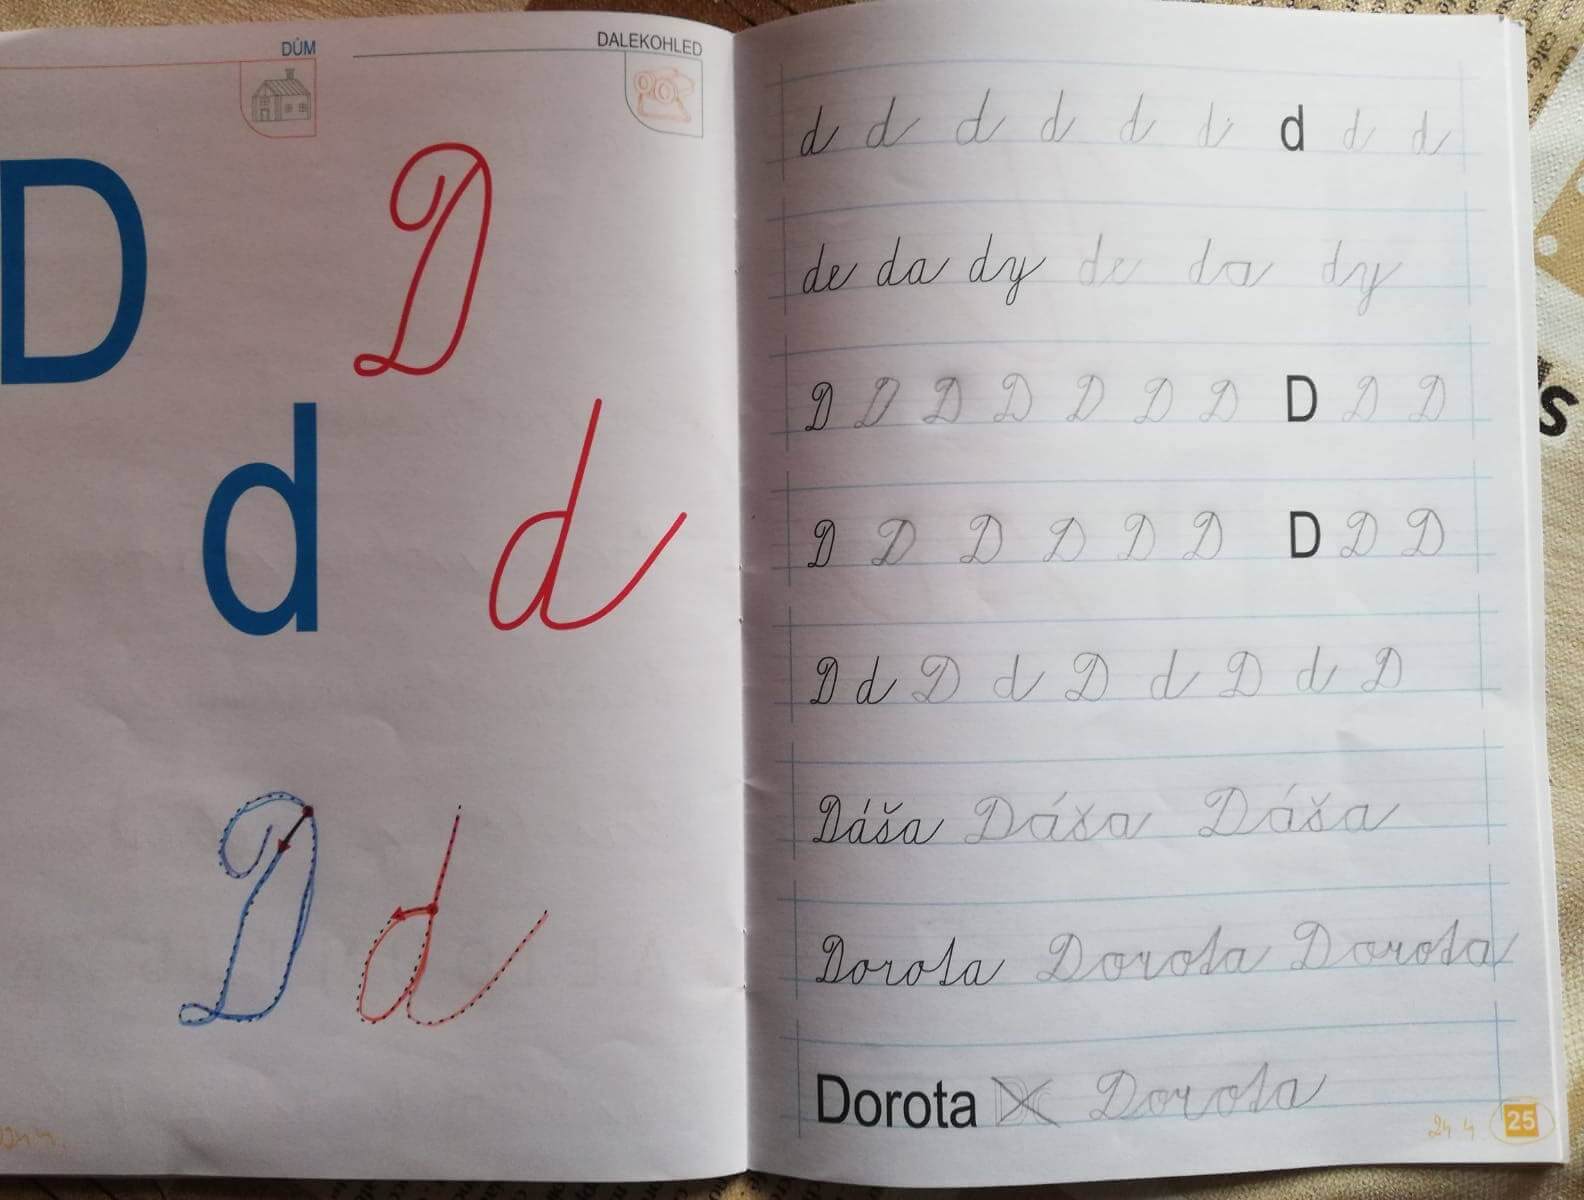 DŮM
DALEKOHLED
D D
d d
D d
d d d d d d d d d
de da dy de da dy
D D D D D D D D D D
D D D D D D D D D
D d D d D d D d D
Dáša Dáša Dáša
Dorota Dorota Dorota
Dorota Dorota
24 4. 25